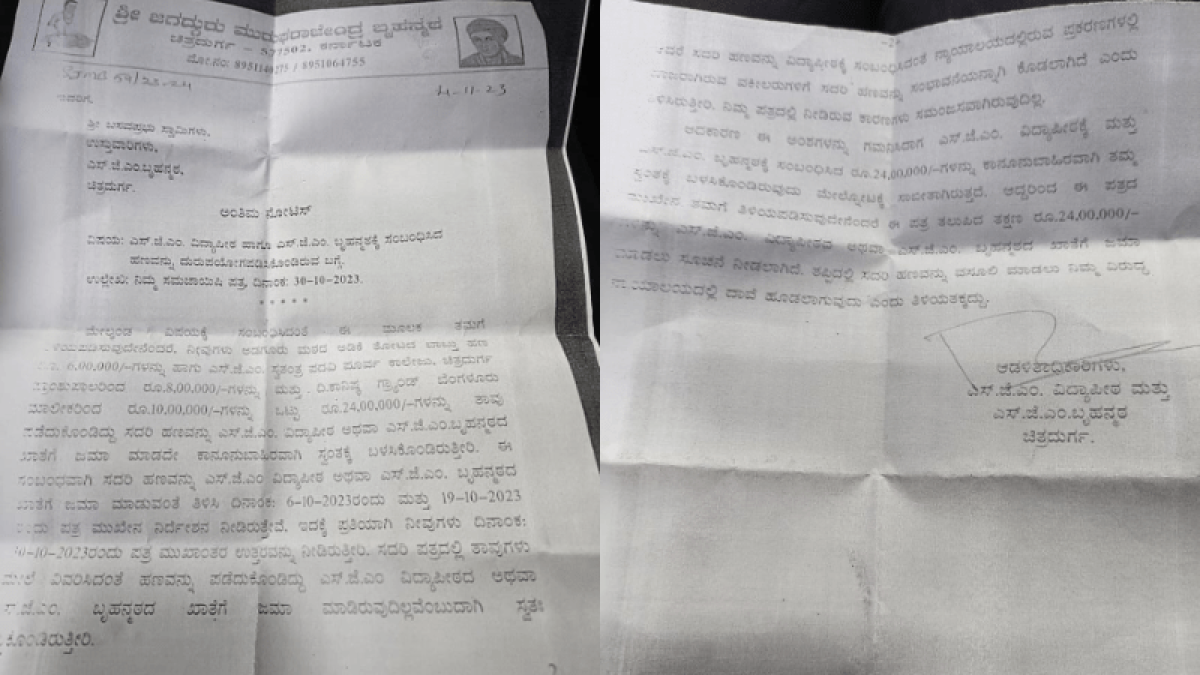 ಶ್ರೀ ಜಗದ್ಗುರು ಮುರುಘರಾಜೇಂದ್ರ ಬೃಹನ್ಮಠ
ಚಿತ್ರದುರ್ಗ - 577502. ಕರ್ನಾಟಕ
8951064755
4-11-23
ಶ್ರೀ ಬಸವಪ್ರಭು ಸ್ವಾಮಿಗಳು,
ಉಸ್ತುವಾರಿಗಳು,
ಎಸ್.ಜೆ.ಎಂ.ಬೃಹನ್ಮಠ,
ಚಿತ್ರದುರ್ಗ.
ಅಂತಿಮ ನೋಟಿಸ್
ವಿಷಯ: ಎಸ್.ಜೆ.ಎಂ. ವಿದ್ಯಾಪೀಠ ಹಾಗೂ ಎಸ್.ಜೆ.ಎಂ. ಬೃಹನ್ಮಠಕ್ಕೆ ಸಂಬಂಧಿಸಿದ
ಹಣವನ್ನು ದುರುಪಯೋಗಪಡಿಸಿಕೊಂಡಿರುವ ಬಗ್ಗೆ.
ಉಲ್ಲೇಖ: ನಿಮ್ಮ ಸಮಜಾಯಿಷಿ ಪತ್ರ, ದಿನಾಂಕ: 30-10-2023.
*****
ಮೇಲ್ಕಂಡ ವಿಷಯಕ್ಕೆ ಸಂಬಂಧಿಸಿದಂತೆ ಈ ಮೂಲಕ ತಮಗೆ
ನೀವುಗಳು ಆಡಗೂರು ಮಠದ ಅಡಿಕೆ ತೋಟದ ಬಾಬ್ತು ಹಣ
6,00,000/-ಗಳನ್ನು ಹಾಗು ಎಸ್.ಜೆ.ಎಂ. ಸ್ವತಂತ್ರ ಪದವಿ ಪೂರ್ವ ಕಾಲೇಜು, ಚಿತ್ರದುರ್ಗ
ರೂ.8,00,000/-ಗಳನ್ನು ಮತ್ತು ದಿ.ಕಾನಿಷ್ಕ ಗ್ರ್ಯಾಂಡ್ ಬೆಂಗಳೂರು
ಮಾಲೀಕರಿಂದ ರೂ.10,00,000/-ಗಳನ್ನು ಒಟ್ಟು ರೂ.24,00,000/-ಗಳನ್ನು ತಾವು
ಪಡೆದುಕೊಂಡಿದ್ದು ಸದರಿ ಹಣವನ್ನು ಎಸ್.ಜೆ.ಎಂ. ವಿದ್ಯಾಪೀಠ ಅಥವಾ ಎಸ್.ಜೆ.ಎಂ.ಬೃಹನ್ಮಠದ
ಖಾತೆಗೆ ಜಮಾ ಮಾಡದೇ ಕಾನೂನುಬಾಹಿರವಾಗಿ ಸ್ವಂತಕ್ಕೆ ಬಳಸಿಕೊಂಡಿರುತ್ತೀರಿ. ಈ
ಸಂಬಂಧವಾಗಿ ಸದರಿ ಹಣವನ್ನು ಎಸ್.ಜೆ.ಎಂ ವಿದ್ಯಾಪೀಠ ಅಥವಾ ಎಸ್.ಜೆ.ಎಂ. ಬೃಹನ್ಮಠದ
ಖಾತೆಗೆ ಜಮಾ ಮಾಡುವಂತೆ ತಿಳಿಸಿ ದಿನಾಂಕ: 6-10-2023ರಂದು ಮತ್ತು 19-10-2023
ಪತ್ರ ಮುಖೇನ ನಿರ್ದೇಶನ ನೀಡಿರುತ್ತೇವೆ. ಇದಕ್ಕೆ ಪ್ರತಿಯಾಗಿ ನೀವುಗಳು ದಿನಾಂಕ:
30-10-2023ರಂದು ಪತ್ರ ಮುಖಾಂತರ ಉತ್ತರವನ್ನು ನೀಡಿರುತ್ತೀರಿ. ಸದರಿ ಪತ್ರದಲ್ಲಿ ತಾವುಗಳು
ಮೇಲೆ ವಿವರಿಸಿದಂತೆ ಹಣವನ್ನು ಪಡೆದುಕೊಂಡಿದ್ದು ಎಸ್.ಜೆ.ಎಂ ವಿದ್ಯಾಪೀಠದ ಅಥವಾ
ಬೃಹನ್ಮಠದ ಖಾತೆಗೆ ಜಮಾ ಮಾಡಿರುವುದಿಲ್ಲವೆಂಬುದಾಗಿ ಸ್ವತಃ
-2-
ಸದರಿ ಹಣವನ್ನು ವಿದ್ಯಾಪೀಠಕ್ಕೆ ಸಂಬಂಧಿಸಿದಂತೆ ನ್ಯಾಯಾಲಯದಲ್ಲಿರುವ ಪ್ರಕರಣಗಳಲ್ಲಿ
ವಕೀಲರುಗಳಿಗೆ ಸದರಿ ಹಣವನ್ನು ಸಂಭಾವನೆಯನ್ನಾಗಿ ಕೊಡಲಾಗಿದೆ ಎಂದು
ನಿಮ್ಮ ಪತ್ರದಲ್ಲಿ ನೀಡಿರುವ ಕಾರಣಗಳು ಸಮಂಜಸವಾಗಿರುವುದಿಲ್ಲ.
ಆದಕಾರಣ ಈ ಅಂಶಗಳನ್ನು ಗಮನಿಸಿದಾಗ ಎಸ್.ಜೆ.ಎಂ. ವಿದ್ಯಾಪೀಠಕ್ಕೆ ಮತ್ತು
ಎಸ್.ಜೆ.ಎಂ. ಬೃಹನ್ಮಠಕ್ಕೆ ಸಂಬಂಧಿಸಿದ ರೂ.24,00,000/-ಗಳನ್ನು ಕಾನೂನುಬಾಹಿರವಾಗಿ ತಮ್ಮ
ಸ್ವಂತಕ್ಕೆ ಬಳಸಿಕೊಂಡಿರುವುದು ಮೇಲ್ನೋಟಕ್ಕೆ ಸಾಬೀತಾಗಿರುತ್ತದೆ. ಆದ್ದರಿಂದ ಈ ಪತ್ರದ
ಮುಖೇನ ತಮಗೆ ತಿಳಿಯಪಡಿಸುವುದೇನೆಂದರೆ ಈ ಪತ್ರ ತಲುಪಿದ ತಕ್ಷಣ ರೂ.24,00,000/-
ಎಸ್.ಜೆ.ಎಂ. ವಿದ್ಯಾಪೀಠದ ಅಥವಾ ಎಸ್.ಜೆ.ಎಂ. ಬೃಹನ್ಮಠದ ಖಾತೆಗೆ ಜಮಾ
ಮಾಡಲು ಸೂಚನೆ ನೀಡಲಾಗಿದೆ. ತಪ್ಪಿದಲ್ಲಿ ಸದರಿ ಹಣವನ್ನು ವಸೂಲಿ ಮಾಡಲು ನಿಮ್ಮ ವಿರುದ್ಧ
ನ್ಯಾಯಾಲಯದಲ್ಲಿ ದಾವೆ ಹೂಡಲಾಗುವುದು ಎಂದು ತಿಳಿಯತಕ್ಕದ್ದು.
ಆಡಳಿತಾಧಿಕಾರಿಗಳು,
ಎಸ್.ಜೆ.ಎಂ. ವಿದ್ಯಾಪೀಠ ಮತ್ತು
ಎಸ್.ಜೆ.ಎಂ.ಬೃಹನ್ಮಠ
ಚಿತ್ರದುರ್ಗ.